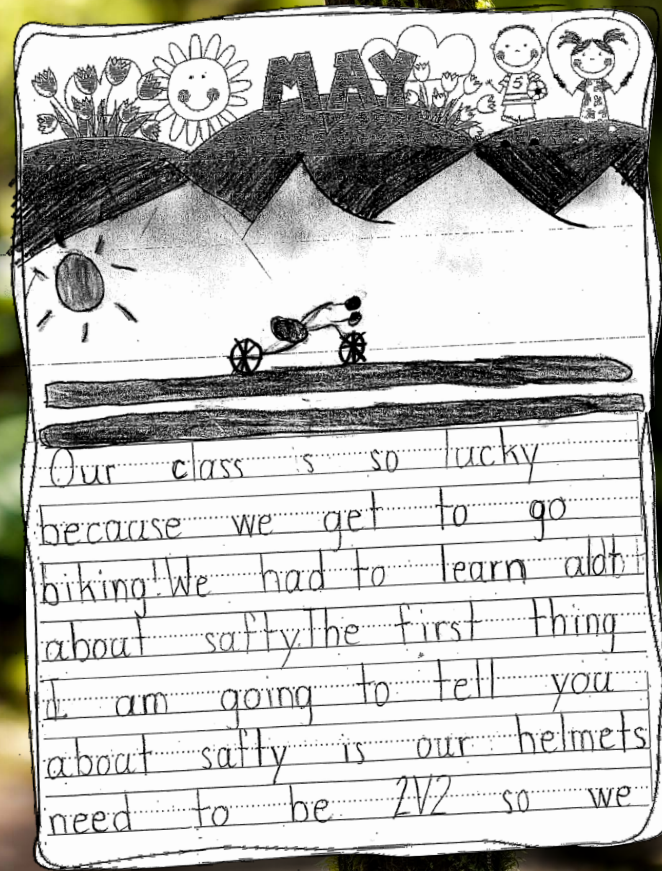 MAY
5
Our class is so lucky
because we get to go
biking! We had to learn aldt
about safty. The first thing
I am going to tell you
about safty is our helmets
need to be 2V2 so we